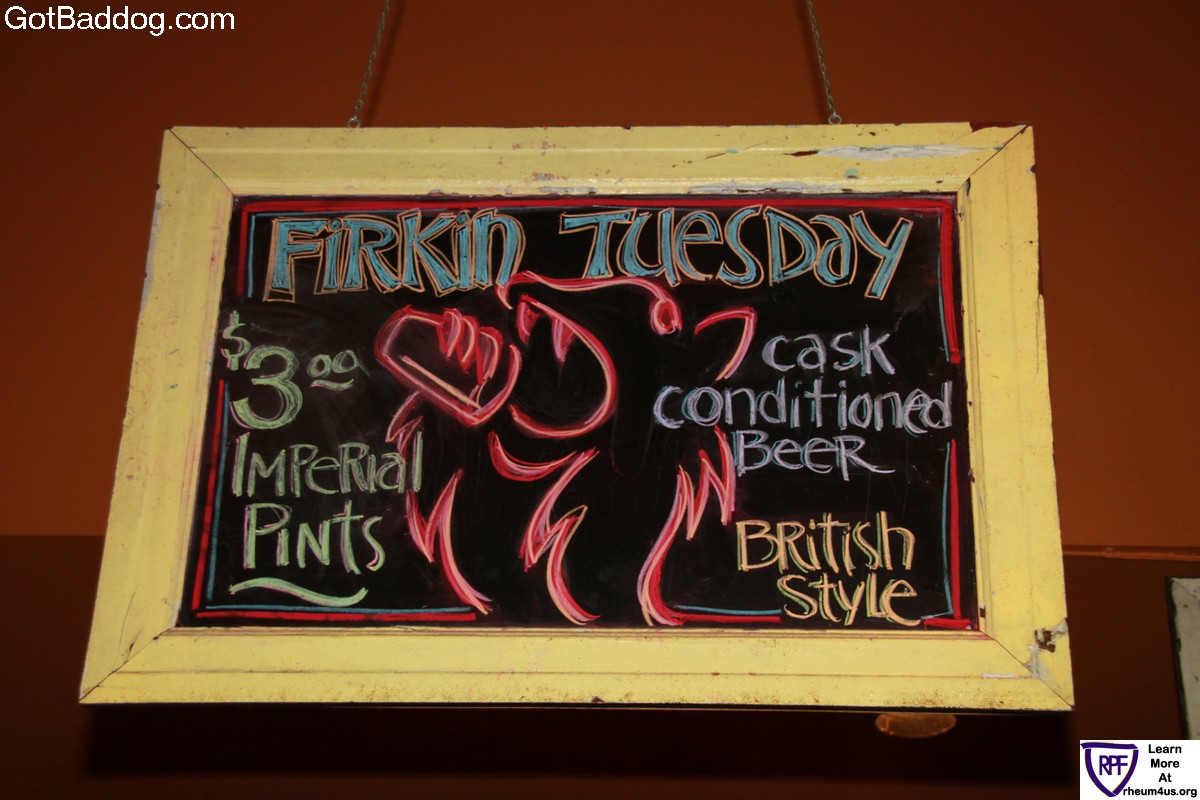 GotBaddog.com
FiRKin TuesDay
$3.00
IMPeRial
PiNts
cask
conditioned
BeeR
BRitish
Style
RPF
Learn
More
At
rheum4us.org